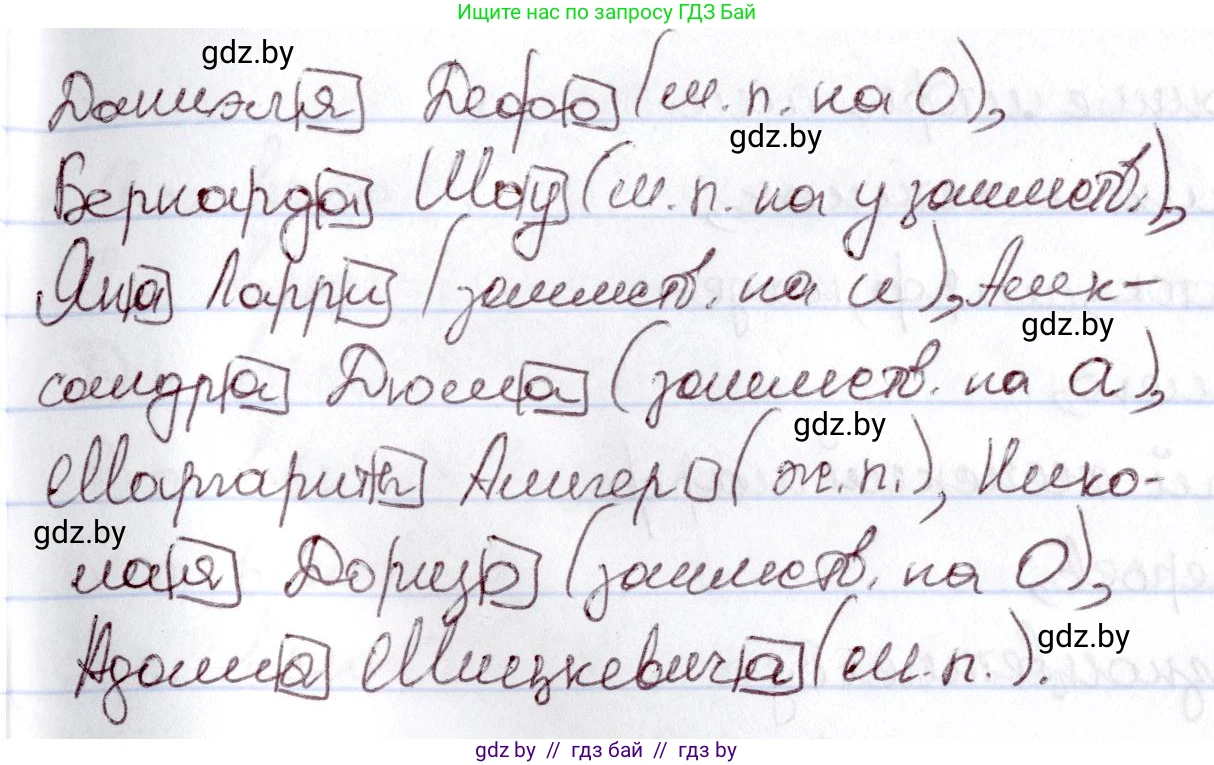 Ищите нас по запросу ГДЗ Бай
gdz.by
Даниэля Дефо (м. п. на О),
gdz.by
Бернарда Шоу (м. п. на у заимств.),
Яна Ларри (заимств. на и), Алек-
gdz.by
сандра Дюма (заимств. на а),
gdz.by
Маргариты Алигер (ж. п.), Нико-
gdz.by
лая Доризо (заимств. на О),
gdz.by
Адама Мицкевича (м. п.).
gdz.by // гдз бай // гдз by